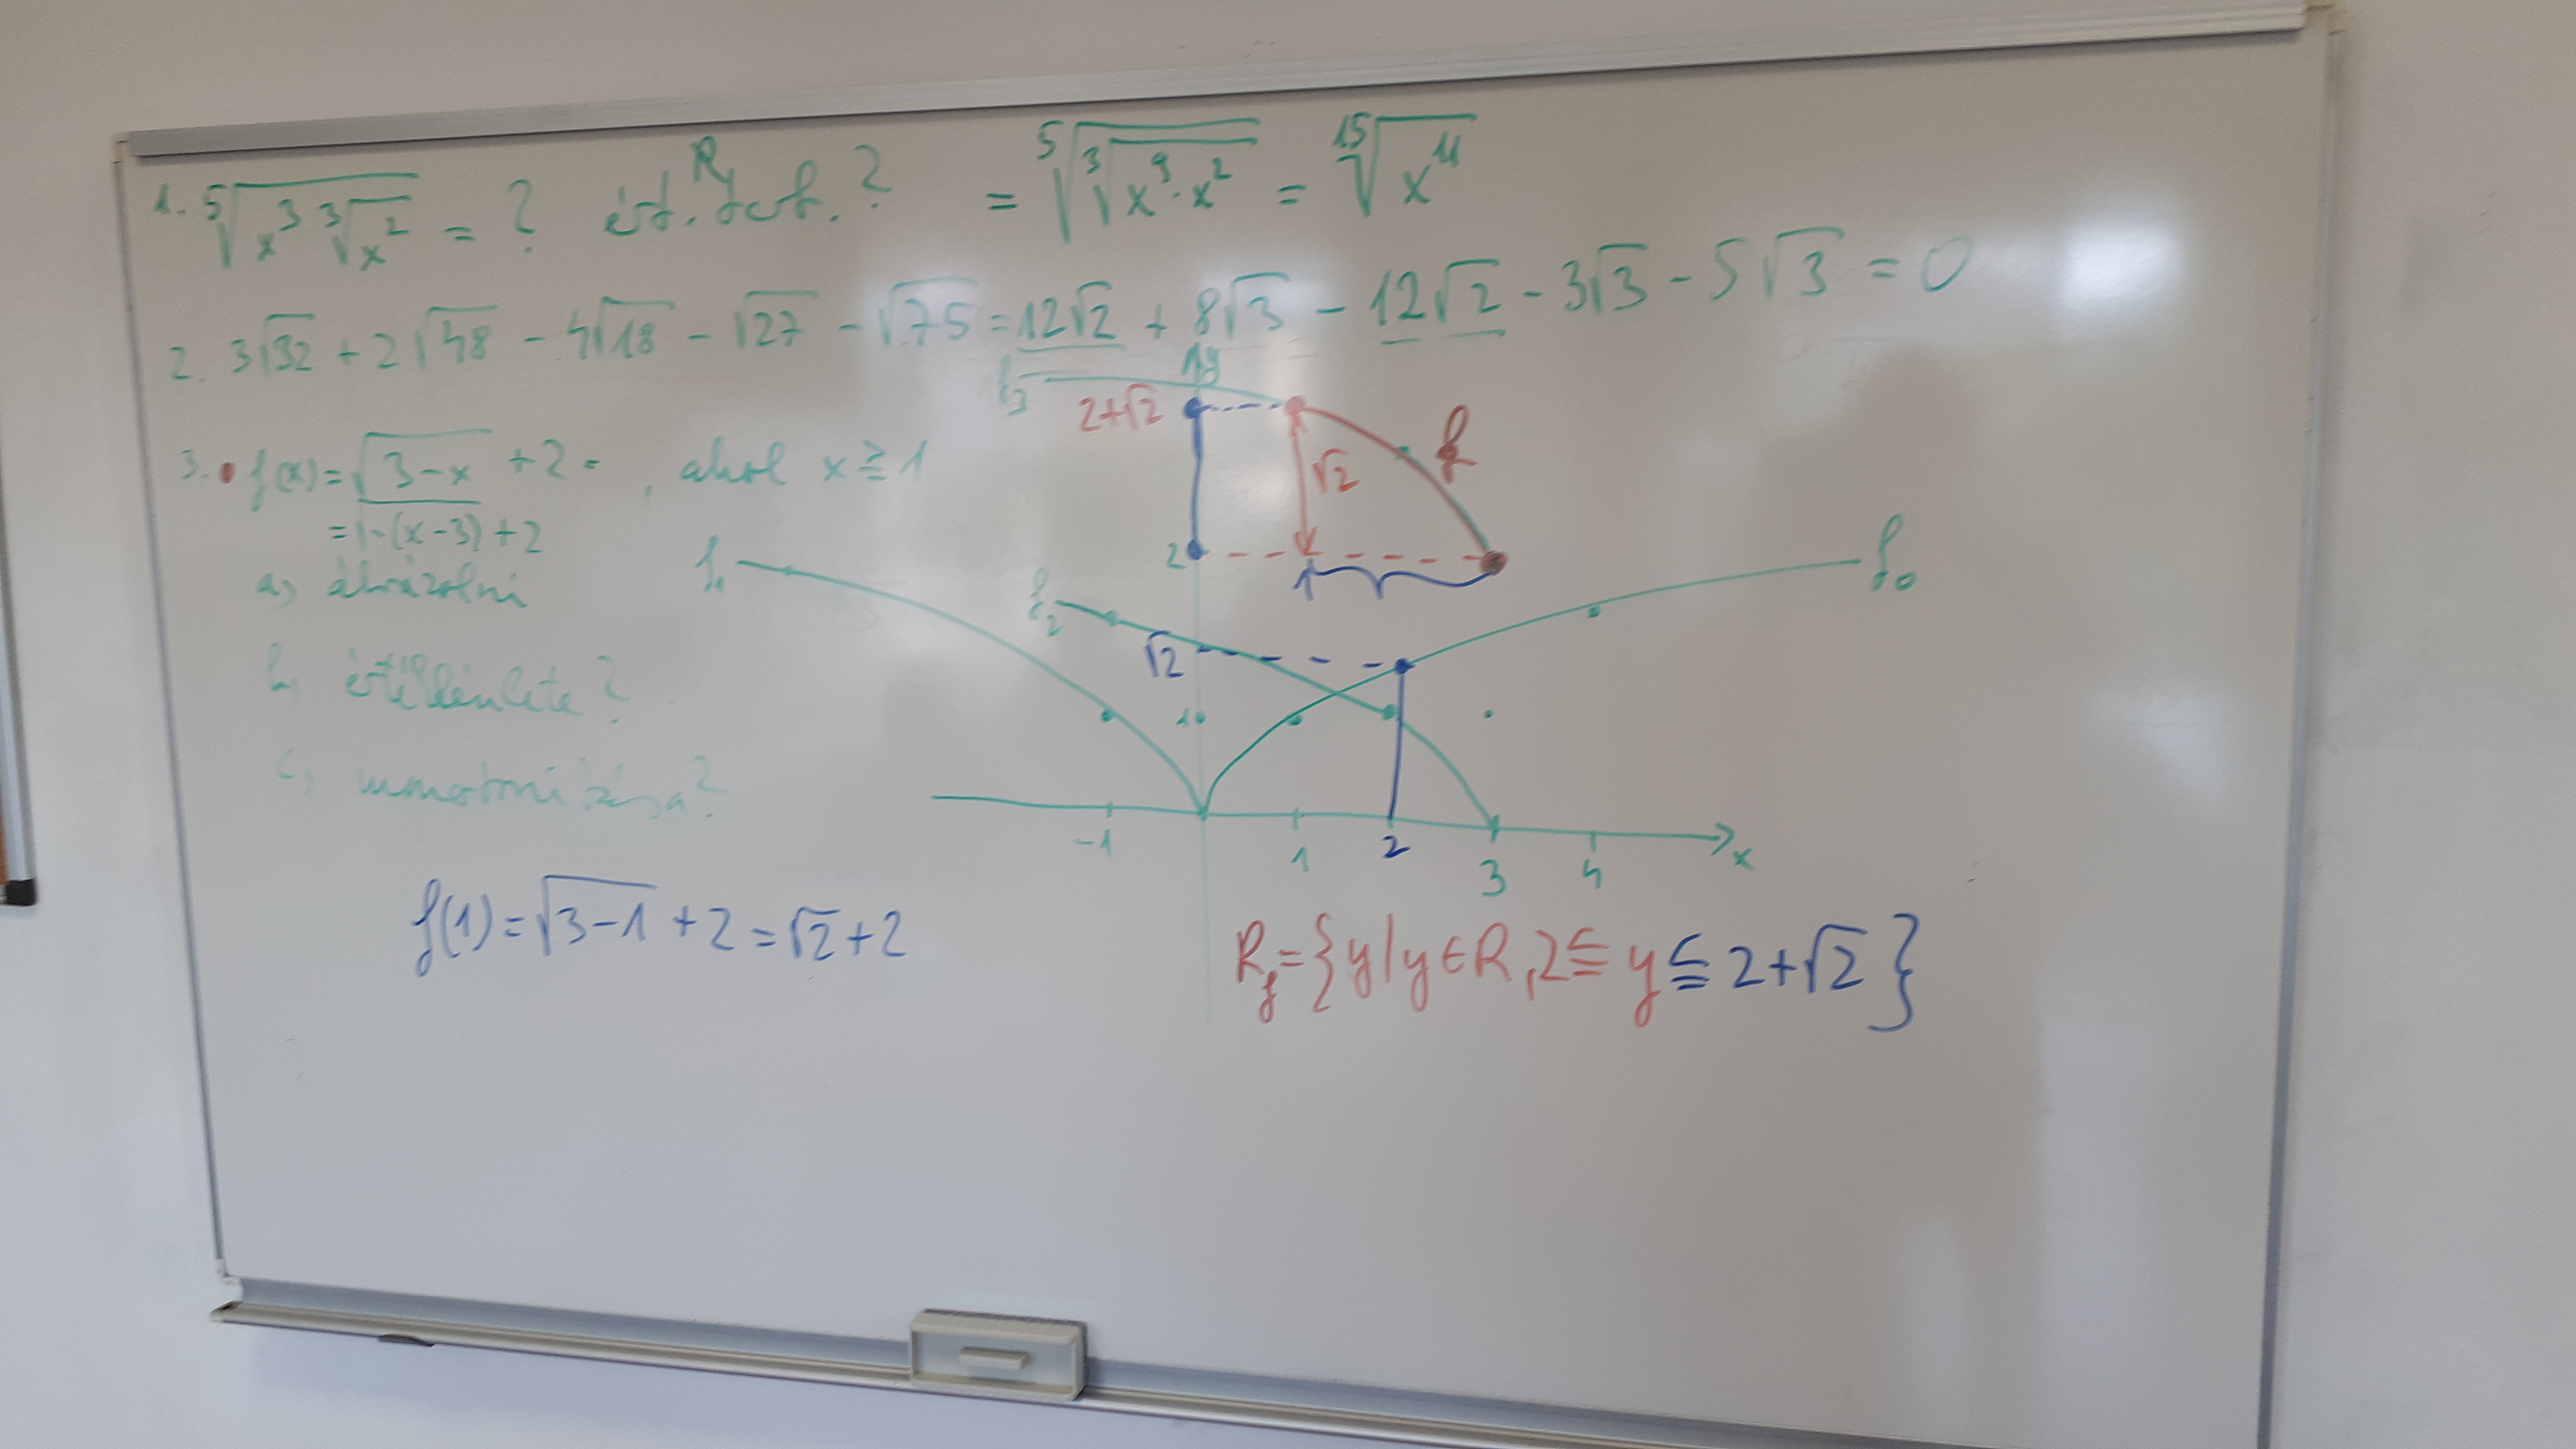 1. ⁵√(x³ ³√(x²)) = ? ért. tart. ? = ⁵√(³√(x⁹·x²)) = ¹⁵√(x¹¹)
R_f
2. 3√32 + 2√48 - 4√18 - √27 - √75 = 12√2 + 8√3 - 12√2 - 3√3 - 5√3 = 0
3. f(x) = √(3-x) + 2 , ahol x ≧ 1
= √(-(x-3)) + 2
a) ábrázolni
b) értékkészlete?
c) monotonitása?
f(1) = √(3-1) + 2 = √2 + 2
y
f₃
2+√2
√2
f
2
1
f₁
f₂
f₀
√2
1
-1
1
2
3
4
x
R_f = {y | y ∈ R, 2 ≦ y ≦ 2+√2}